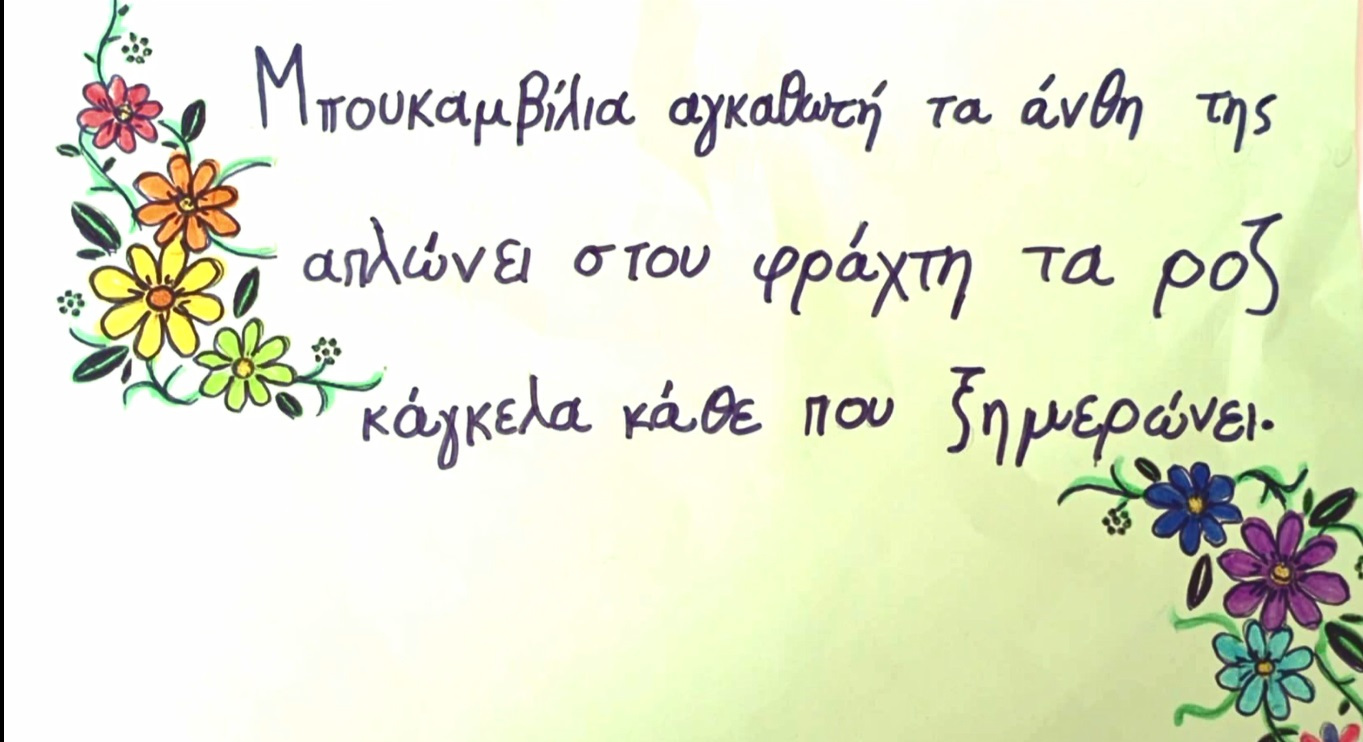 Μπουκαμβίλια αγκαθωτή τα άνθη της
απλώνει στου φράχτη τα ροζ
κάγκελα κάθε που ξημερώνει.